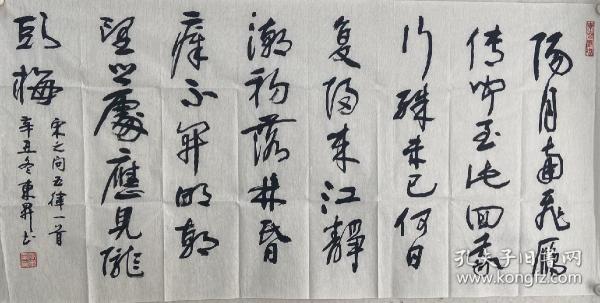 陽月南飛鴈
传聞至此回我
行殊未已何日
复歸来江靜
潮初落林昏
瘴不開明朝
望乡處應見隴
頭梅
宋之问五律一首
辛丑冬東昇书
孔夫子旧书网
www.kongfz.com